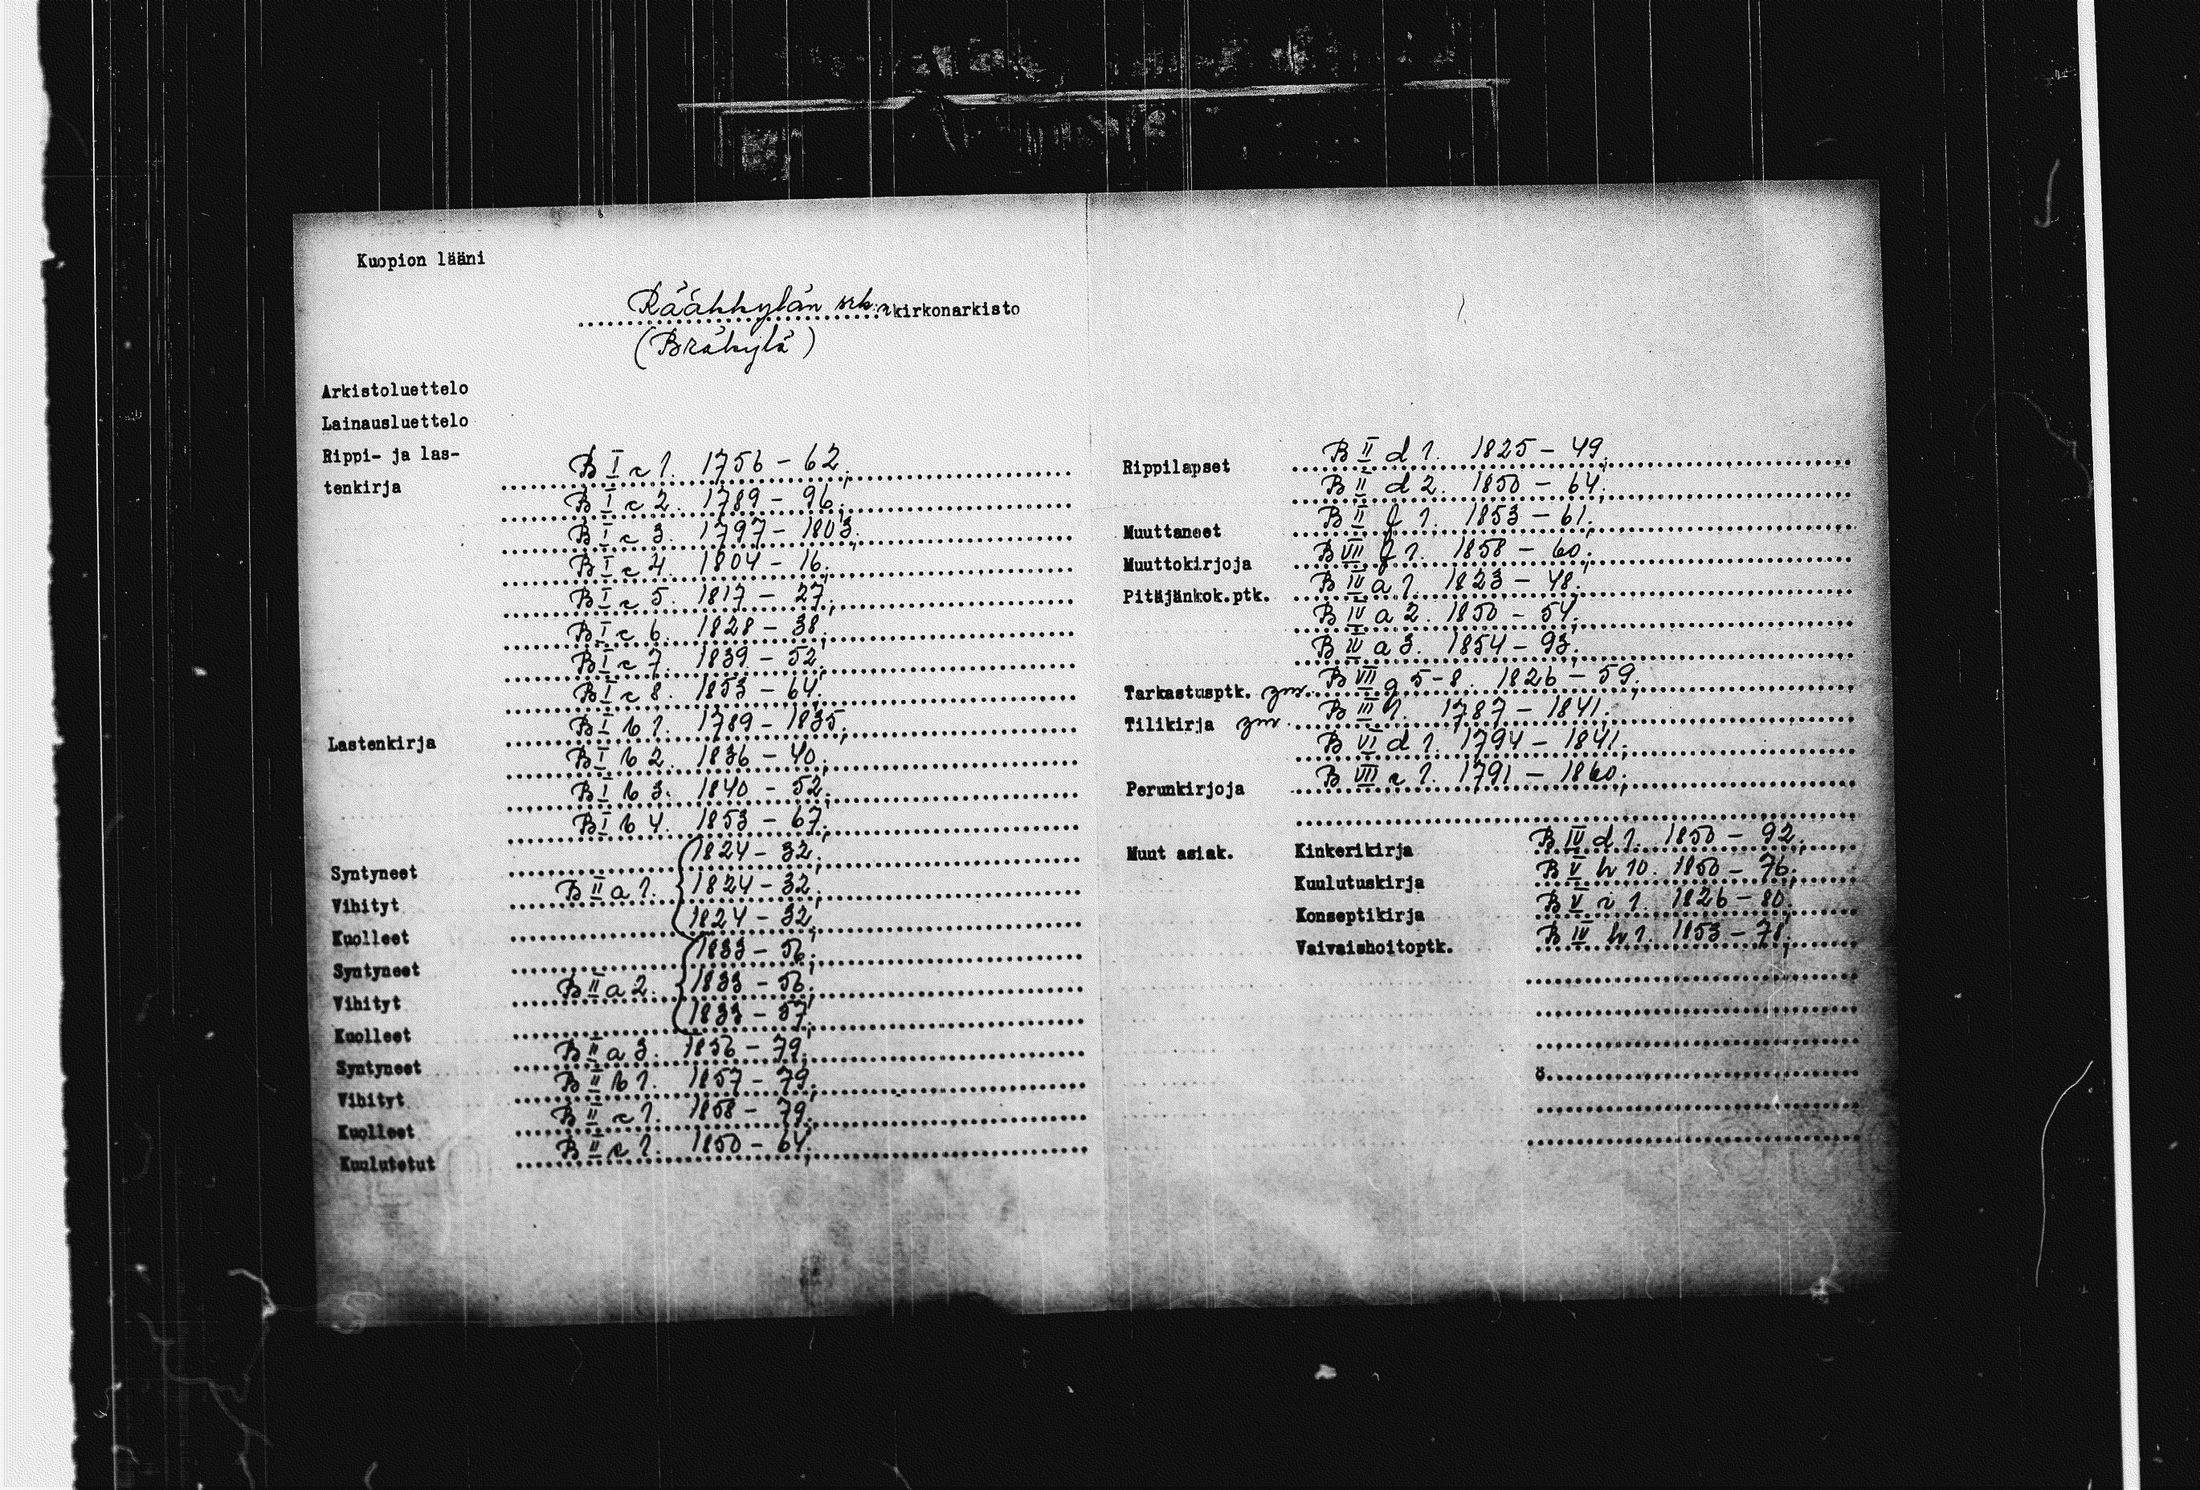 Kuopion lääni
Rääkkylän srk:n kirkonarkisto
(Bräkylä)
Arkistoluettelo
Lainausluettelo
Rippi- ja las-
tenkirja B I c 1. 1756 - 62;
B I c 2. 1789 - 96;
B I c 3. 1797 - 1803;
B I c 4. 1804 - 16;
B I c 5. 1817 - 27;
B I c 6. 1828 - 38;
B I c 7. 1839 - 52;
B I c 8. 1853 - 64;
Lastenkirja B I b 1. 1789 - 1835;
B I b 2. 1836 - 40;
B I b 3. 1840 - 52;
B I b 4. 1853 - 67;
Syntyneet 1824 - 32;
Vihityt B II a 1. 1824 - 32;
Kuolleet 1824 - 32;
Syntyneet 1833 - 56;
Vihityt B II a 2. 1833 - 56;
Kuolleet 1833 - 57;
Syntyneet B II a 3. 1856 - 79;
Vihityt B II b 1. 1857 - 79;
Kuolleet B II c 1. 1858 - 79;
Kuulutetut B II e 1. 1850 - 64;
Rippilapset B II d 1. 1825 - 49;
B II d 2. 1850 - 64;
Muuttaneet B II f 1. 1853 - 61;
Muuttokirjoja B VII f 1. 1858 - 60;
Pitäjänkok.ptk. B IV a 1. 1823 - 48;
B IV a 2. 1850 - 54;
B IV a 3. 1854 - 93;
Tarkastusptk. B VII g 5-8. 1826 - 59;
Tilikirja B III 1. 1787 - 1841;
B VI d 1. 1794 - 1841;
Perunkirjoja B VII c 1. 1791 - 1860;
Muut asiak. Kinkerikirja B IV d 1. 1850 - 92;
Kuulutuskirja B V h 10. 1850 - 76;
Konseptikirja B V c 1. 1826 - 80.
Vaivaishoitoptk. B IV h 1. 1853 - 78;
ö